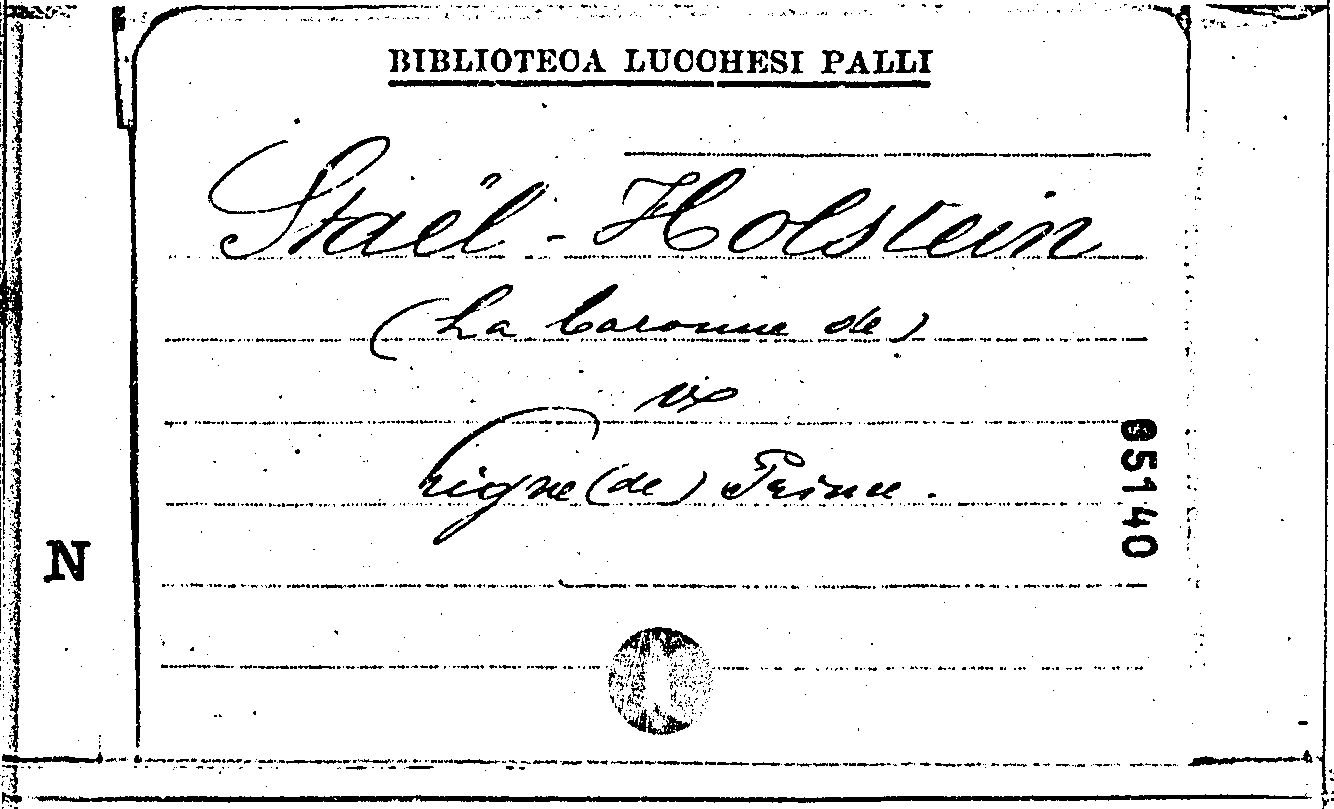 BIBLIOTECA LUCCHESI PALLI
Staël - Holstein
(La baronne de)
in
Ligne (de) Prince.
85140
N